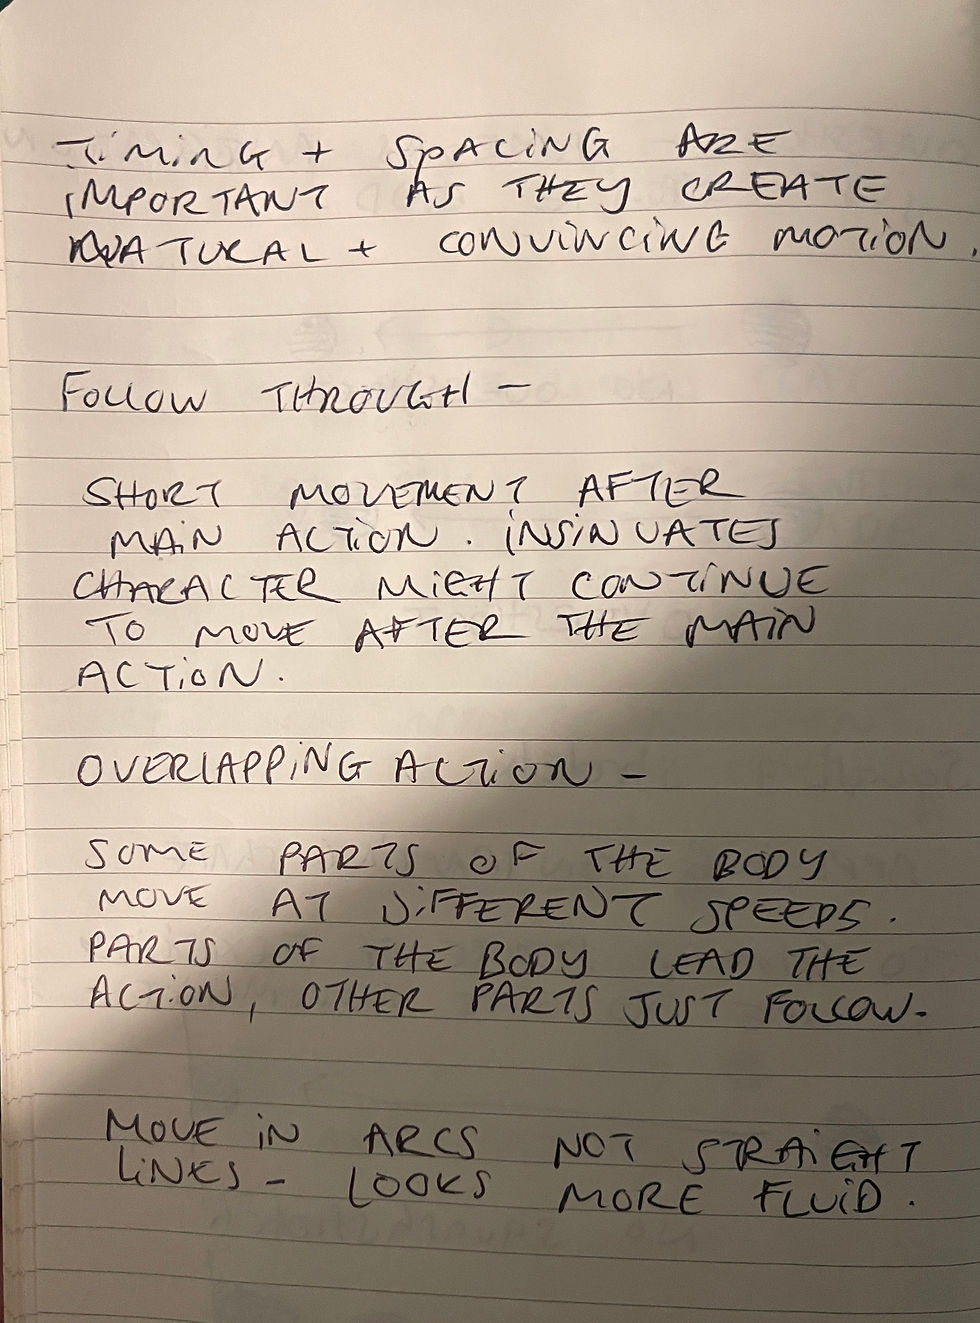 TiMiNG + SPACiNG ARE
iMPORTANT AS THEY CREATE
NATURAL + CONVINCING MOTION.
FOLLOW THROUGH -
SHORT MOVEMENT AFTER
MAiN ACTiON. iNSiNUATES
CHARACTER MiGHT CONTiNUE
TO MOVE AFTER THE MAiN
ACTiON.
OVERLAPPiNG ACTiON -
SOME PARTS OF THE BODY
MOVE AT DiFFERENT SPEEDS.
PARTS OF THE BODY LEAD THE
ACTiON, OTHER PARTS JUST FOLLOW.
MOVE iN ARCS NOT STRAiGHT
LiNES - LOOKS MORE FLUiD.